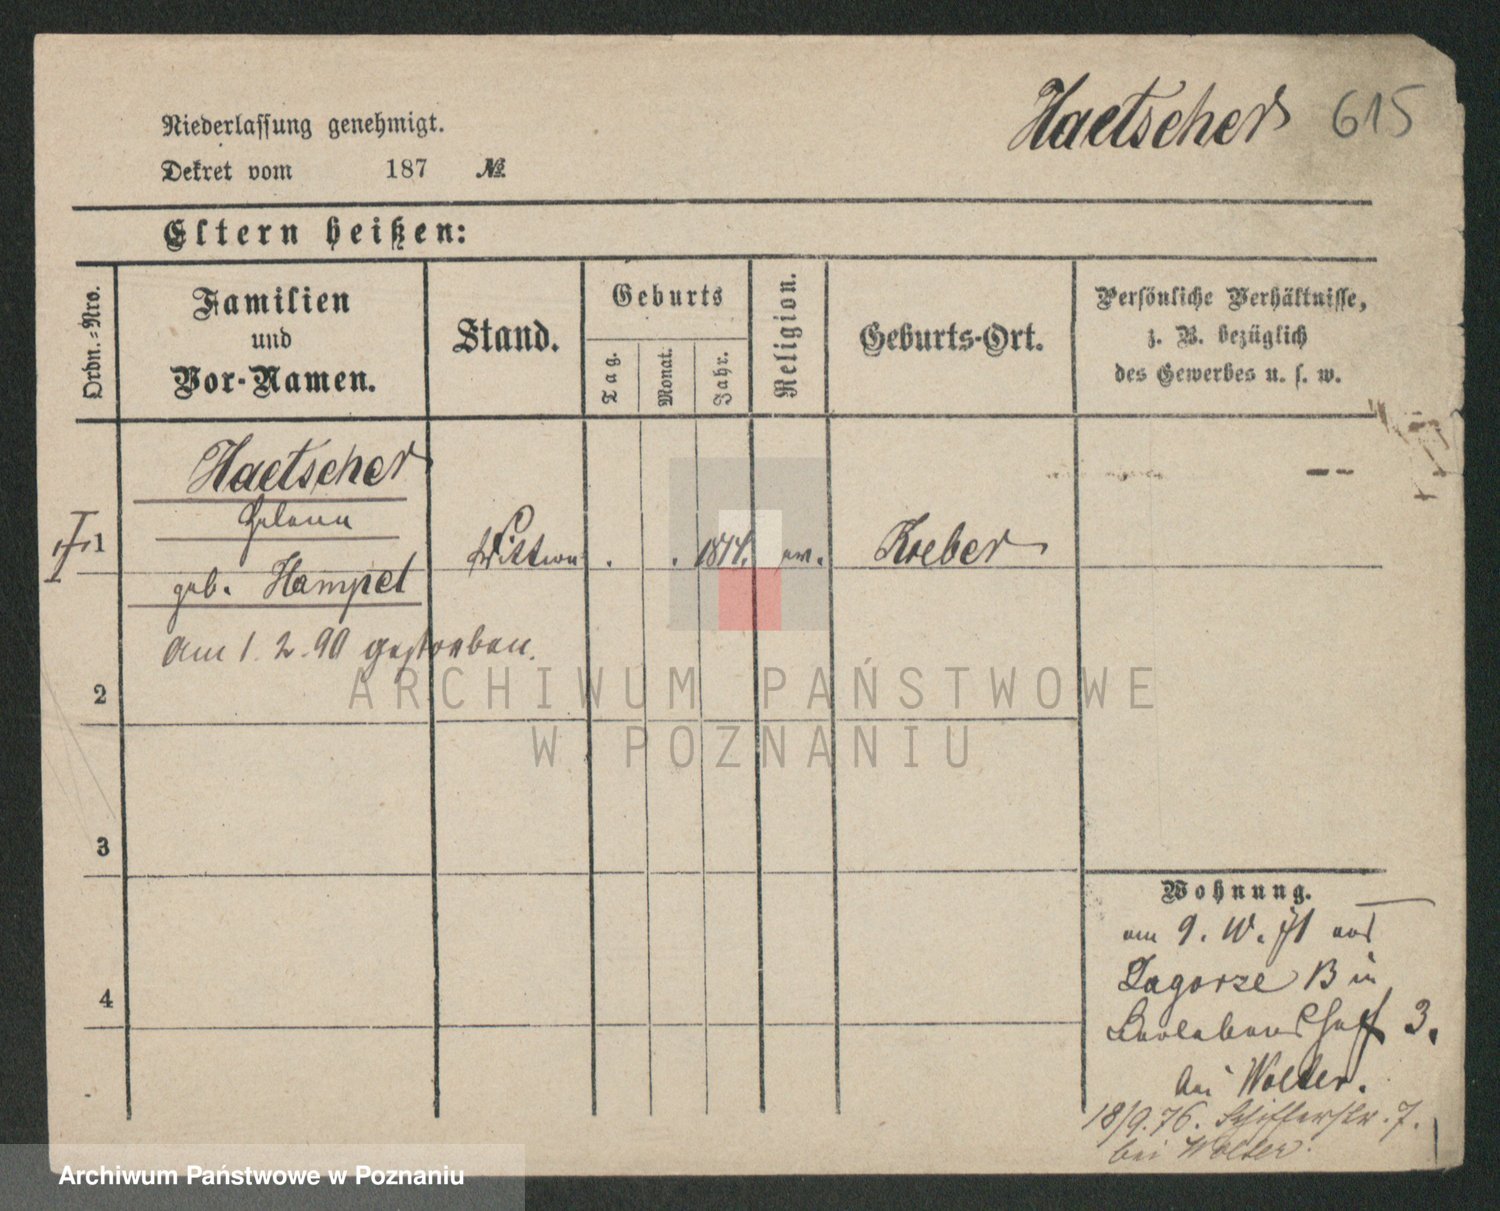 Haetscher 615
Niederlassung genehmigt.
Dekret vom 187 №
Eltern heißen:
Ordn.-Nro.
Familien
und
Vor-Namen.
Stand.
Geburts
Tag.
Monat.
Jahr.
Religion.
Geburts-Ort.
Persönliche Verhältnisse,
z. B. bezüglich
des Gewerbes u. s. w.
Haetscher
Helena
1 Wittwe . . ev. Koeber
geb. Hampel
am 1. 2. 90 gestorben.
2
ARCHIWUM PAŃSTWOWE
W POZNANIU
3
Wohnung.
am 9. aus
Zagorze B in
3.
4
bei Wolter.
18/9. 76. Schifferstr. 7.
bei Wolter.
Archiwum Państwowe w Poznaniu